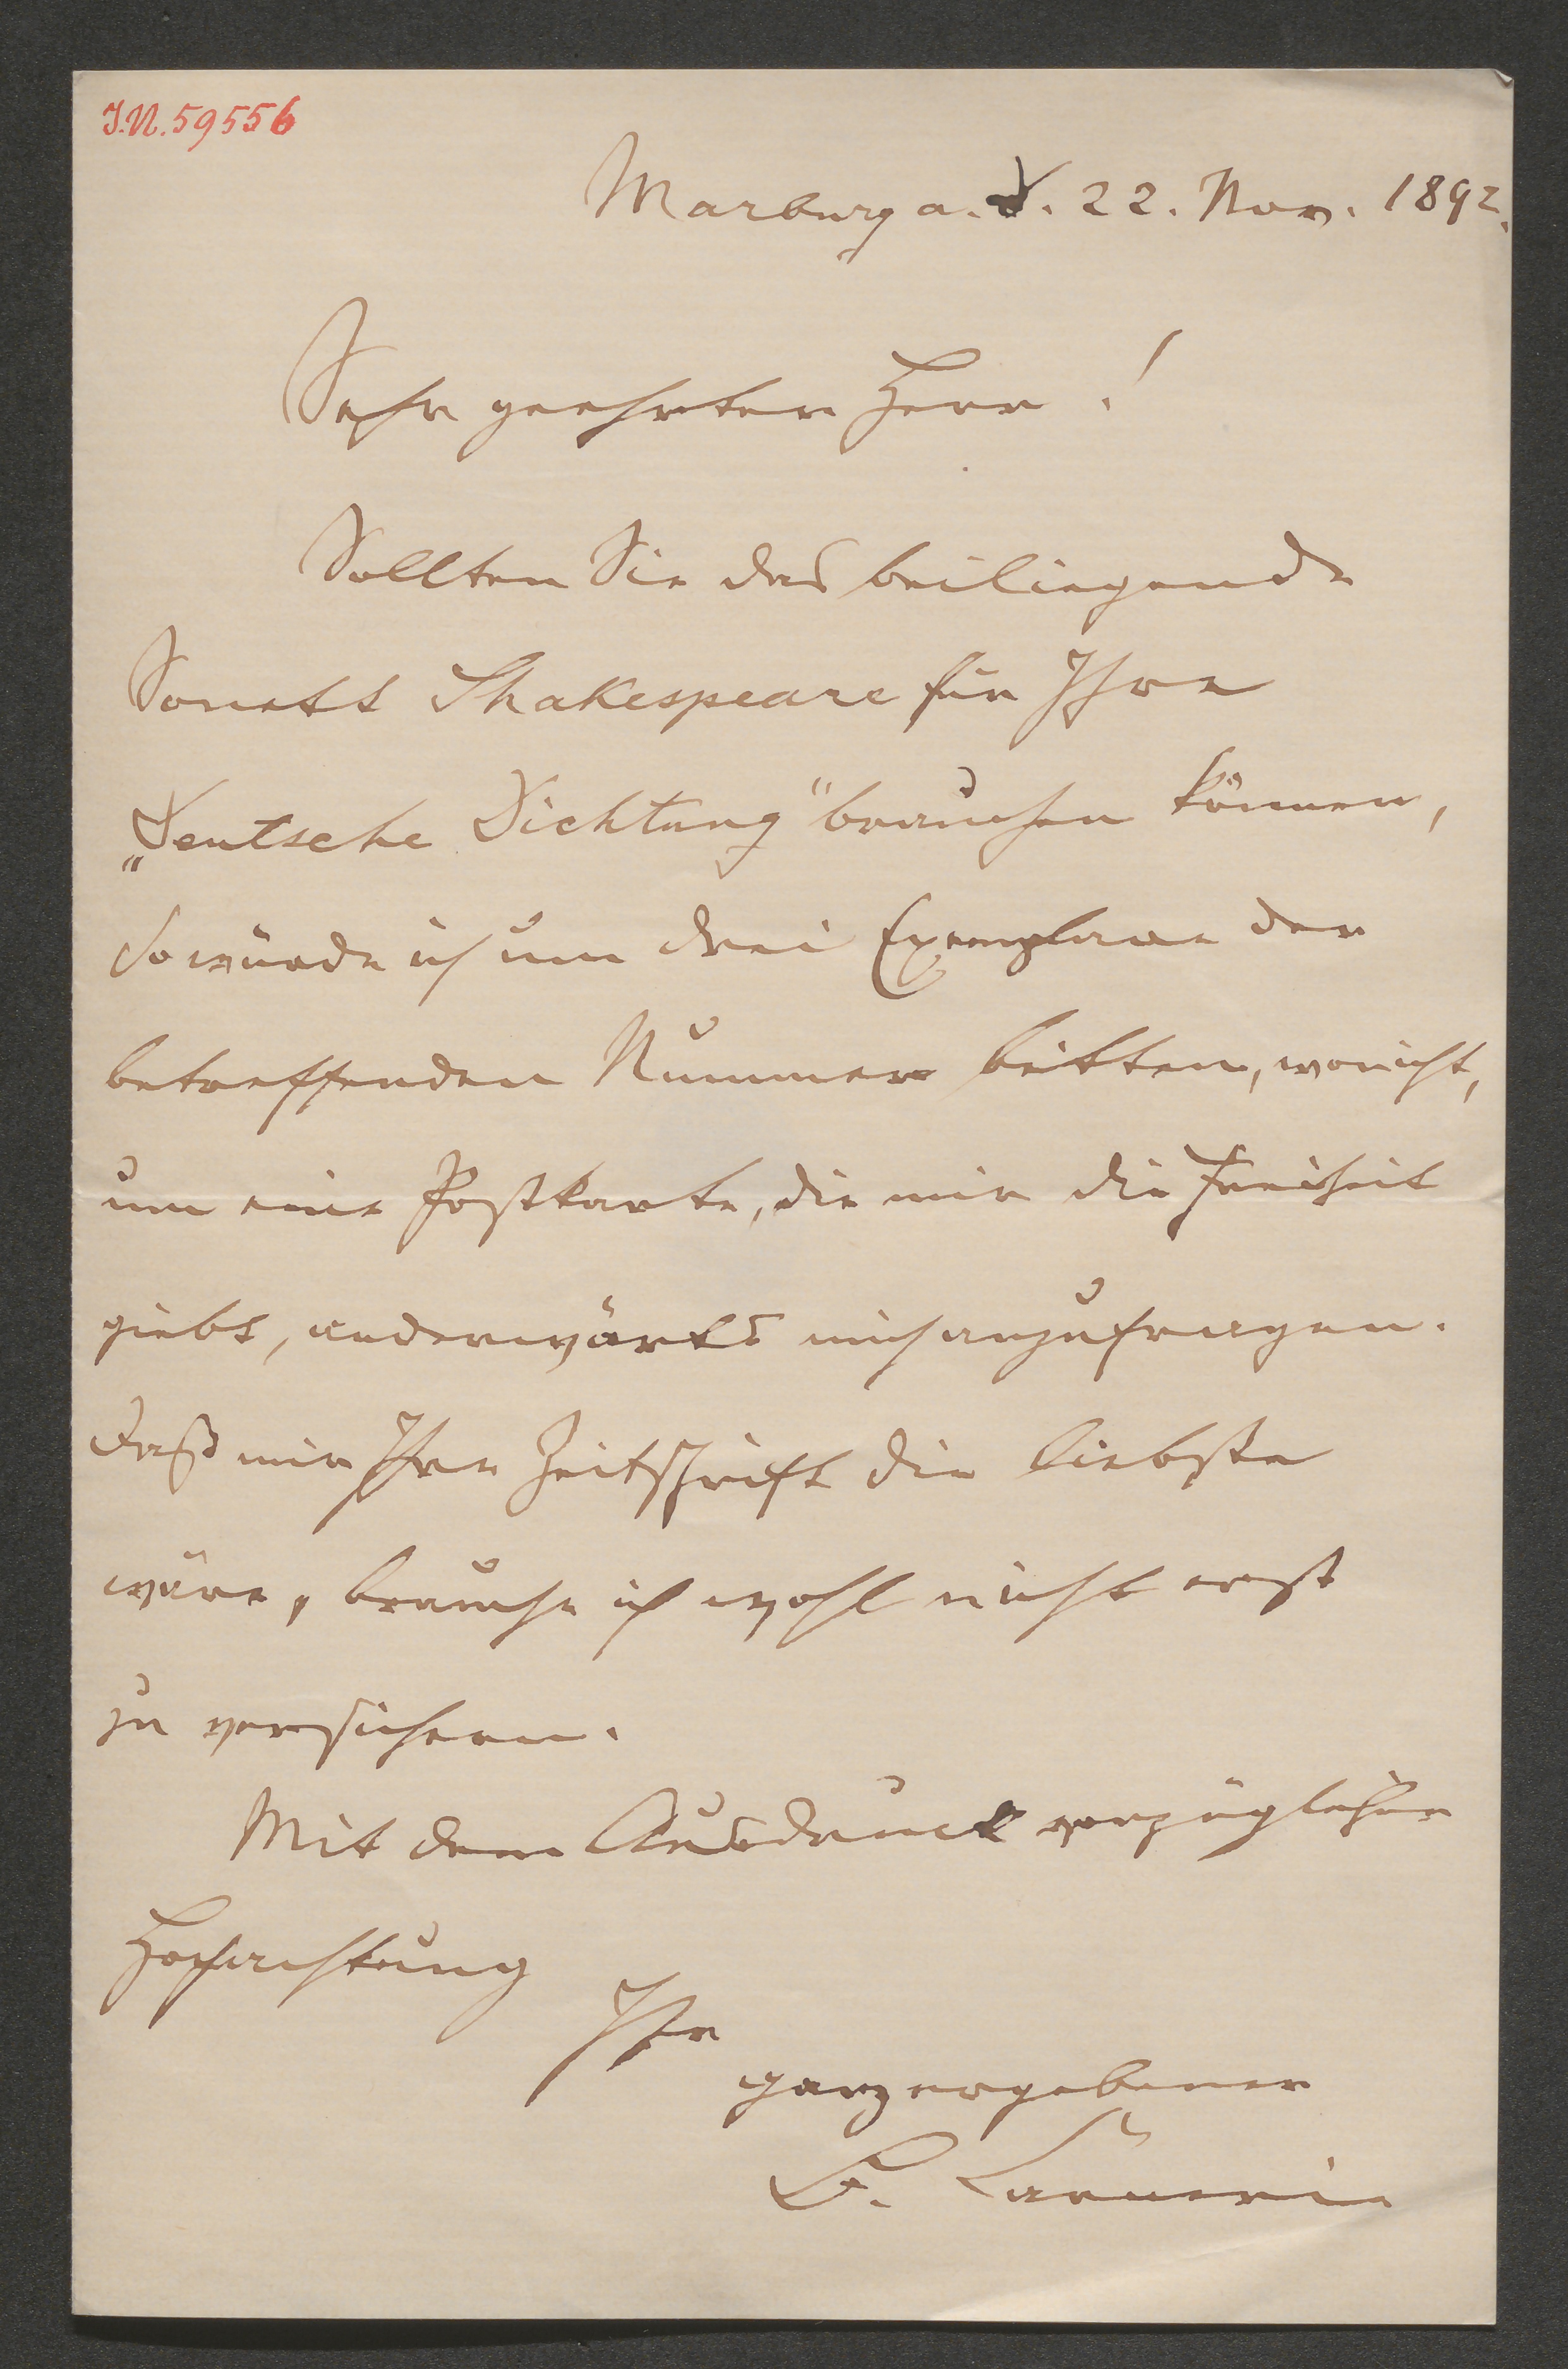 J.N. 59556
Marburg a. D. 22. Nov. 1892.
Sehr geehrter Herr!
Sollten Sie das beiliegende
Sonett Shakespeare für Ihre
„Deutsche Dichtung" brauchen können,
so würde ich um drei Exemplare der
betreffenden Nummer bitten, wonicht,
um eine Postkarte, die mir die Freiheit
giebt, anderwärts mich anzufragen.
Daß mir Ihre Zeitschrift die liebste
wäre, brauche ich wohl nicht erst
zu versichern.
Mit dem Ausdruck vorzüglicher
Hochachtung
Ihr
ganz ergebener
B. Carneri